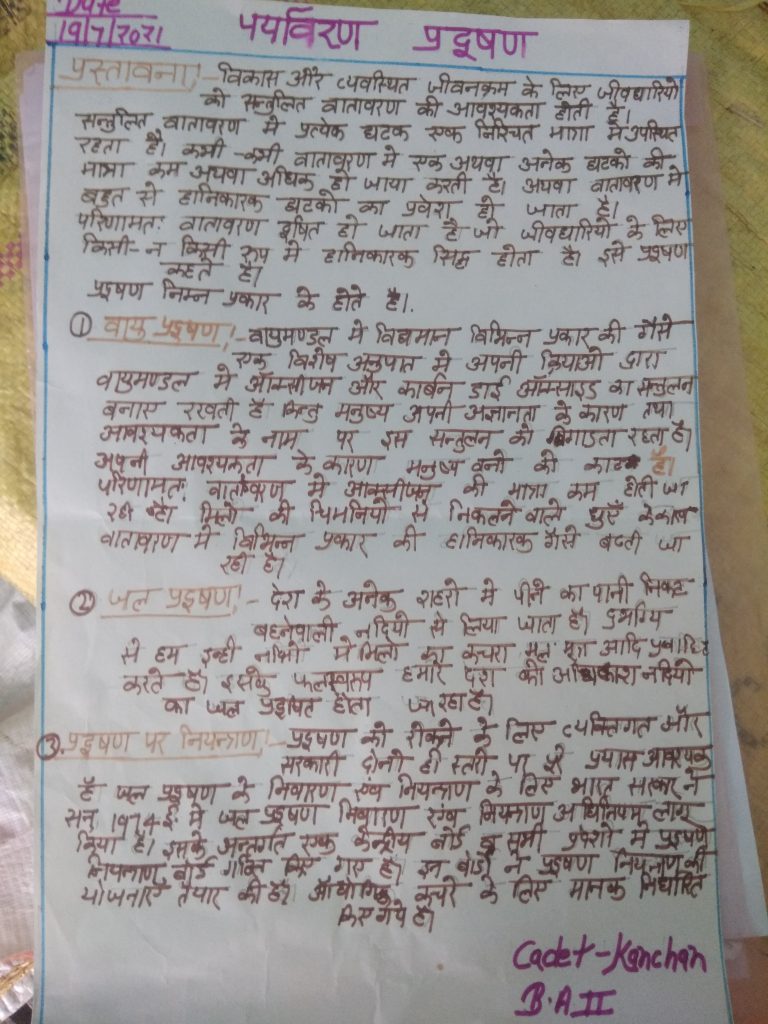 Date
19/7/2021
पर्यावरण प्रदूषण
प्रस्तावना:- विकास और व्यवस्थित जीवनक्रम के लिए जीवधारियो
को सन्तुलित वातावरण की आवश्यकता होती है।
सन्तुलित वातावरण मे प्रत्येक घटक एक निश्चित मात्रा मे उपस्थित
रहता है। कभी-कभी वातावरण मे एक अथवा अनेक घटको की
मात्रा कम अथवा अधिक हो जाया करती है। अथवा वातावरण मे
बहुत से हानिकारक घटको का प्रवेश हो जाता है।
परिणामतः वातावरण दूषित हो जाता है जो जीवधारियो के लिए
किसी-न किसी रूप मे हानिकारक सिद्ध होता है। इसे प्रदूषण
कहते है।
प्रदूषण निम्न प्रकार के होते है।.
① वायु प्रदूषण:- वायुमण्डल मे विद्यमान विभिन्न प्रकार की गैसे
एक विशेष अनुपात मे अपनी क्रियाओ द्वारा
वायुमण्डल मे ऑक्सीजन और कार्बन डाई ऑक्साइड का सन्तुलन
बनाए रखती है किन्तु मनुष्य अपनी अज्ञानता के कारण तथा
आवश्यकता के नाम पर इस सन्तुलन को बिगाडता रहता है।
अपनी आवश्यकता के कारण मनुष्य वनो को काट है।
परिणामतः वातावरण मे आक्सीजन की मात्रा कम होती जा
रही है। मिलो की चिमनियो से निकलने वाले धुएँ के कारण
वातावरण मे विभिन्न प्रकार की हानिकारक गैसे बढती जा
रही है।
② जल प्रदूषण:- देश के अनेक शहरो मे पीने का पानी निकट
बहनेवाली नदियो से लिया जाता है।
से हम इन्ही मे मिलो का कचरा मल मूत्र आदि प्रवाहित
करते है। इसके फलस्वरूप हमारे देश की अधिकांश नदियो
का जल प्रदूषित होता जा रहा है।
③. प्रदूषण पर नियन्त्रण:- प्रदूषण को रोकने के लिए व्यक्तिगत और
सरकारी दोनो ही स्तरो पर पूरे प्रयास आवश्यक
है जल प्रदूषण के निवारण एंव नियन्त्रण के लिए भारत सरकार ने
सन् 1974 ई मे जल प्रदूषण निवारण एंव नियन्त्रण अधिनियम लागू
किया है। इसके अन्तर्गत एक केन्द्रीय बोर्ड व सभी प्रदेशो मे प्रदूषण
नियन्त्रण बोर्ड गठित किए गए है। इन बोर्डो ने प्रदूषण नियन्त्रण की
योजनाएँ तैयार की है। औद्योगिक कचरे के लिए मानक निर्धारित
किए गये है।
Cadet-Kanchan
B.A II